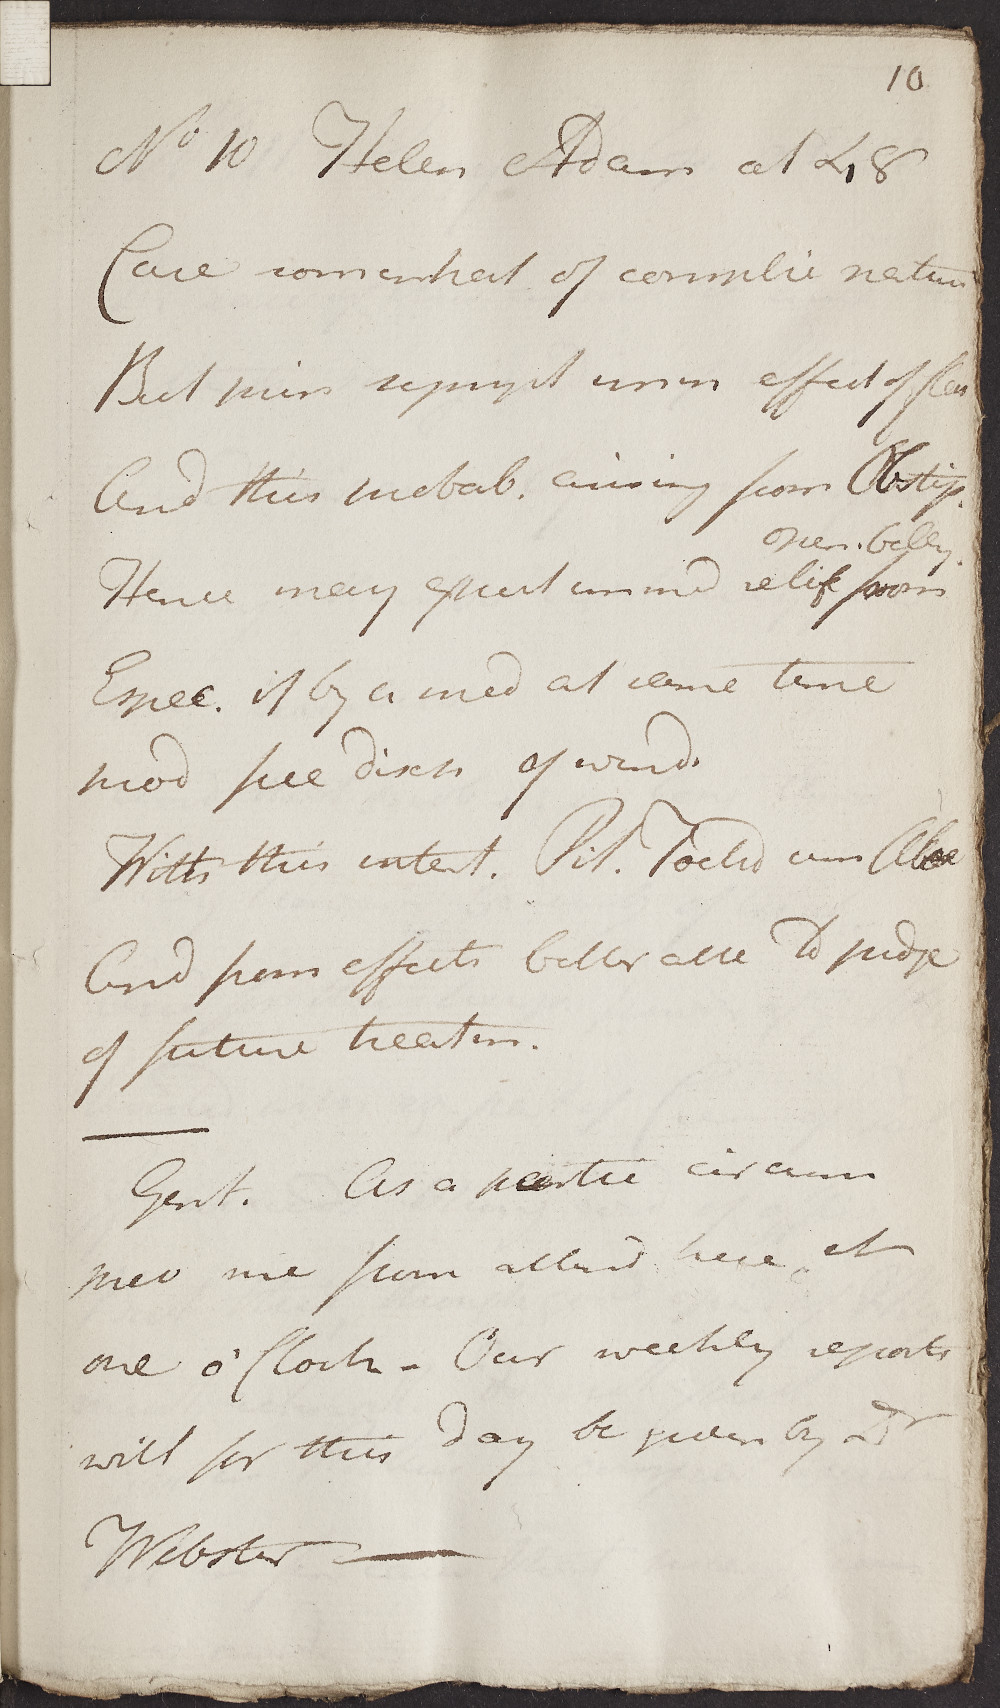 10
No 10 Helen Adam æt 48
Case somewhat of complic nature
But prin sympt upon effect of flat
And this probab. arising from Obstip.
open. belly.
Hence may expect immed relief from
Espec. if by a med at same time
prod free disch of wind.
With this intent. Pil. Foetid cum Aloe
And from effects better able To judge
of future treatm.
Gent. As a partic circum
prev me from attend here at
one o'Clock - Our weekly reports
will for this Day be given by Dr
Webster